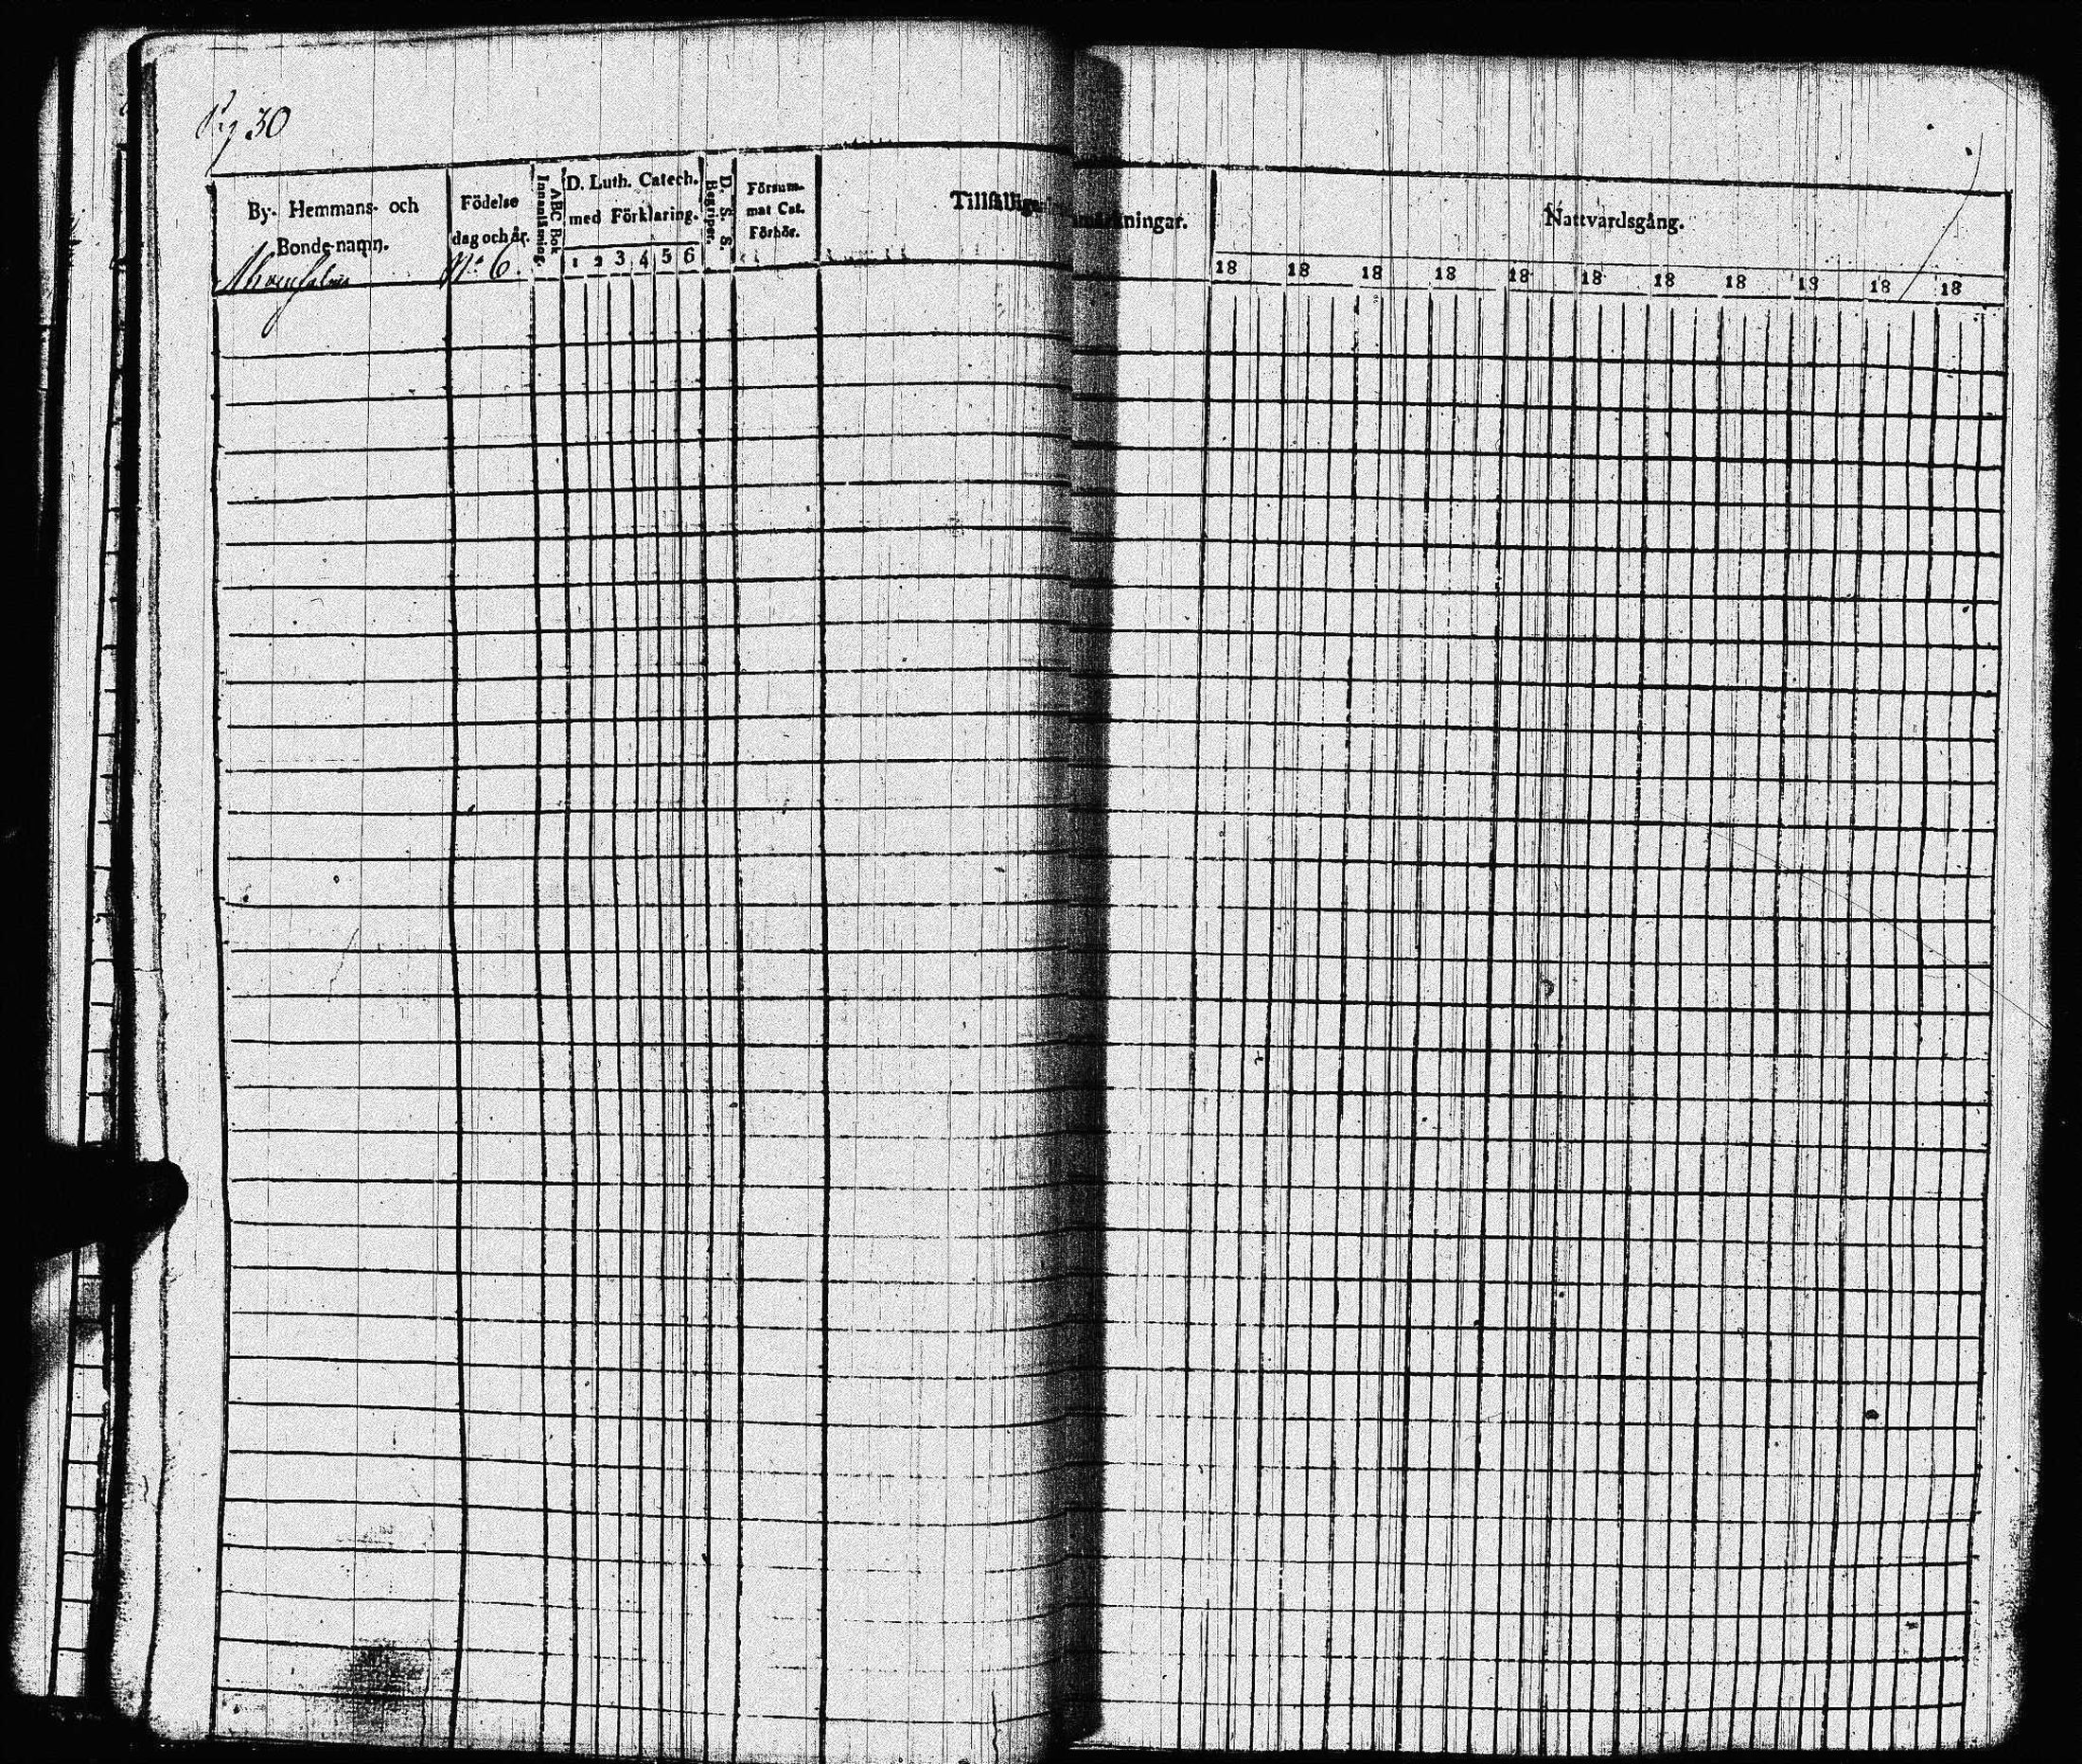 Pag 30
By- Hemmans- och
Bonde-namn.
Födelse
dag och år.
N:o 6.
ABC Bok
Innanläsning.
D. Luth. Catech.
med Förklaring.
1 2 3 4 5 6
D. S. S.
Begriper.
Försum-
mat Cat.
Förhör.
Tillfällige
ningar.
Nattvardsgång.
18 18 18 18 18 18 18 18 18 18 18